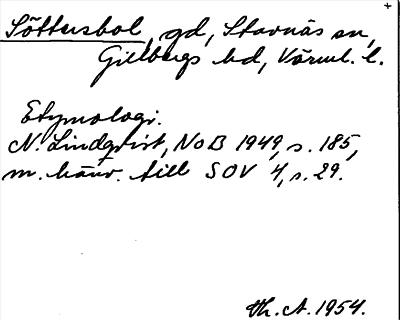 Söttersbol, gd, Stavnäs sn,
Gillbergs hd, Värml. l.
Etymologi.
N. Lindqvist, NoB 1949, s. 185,
m. hänv. till SOV 4, s. 29.
Th. A. 1954.